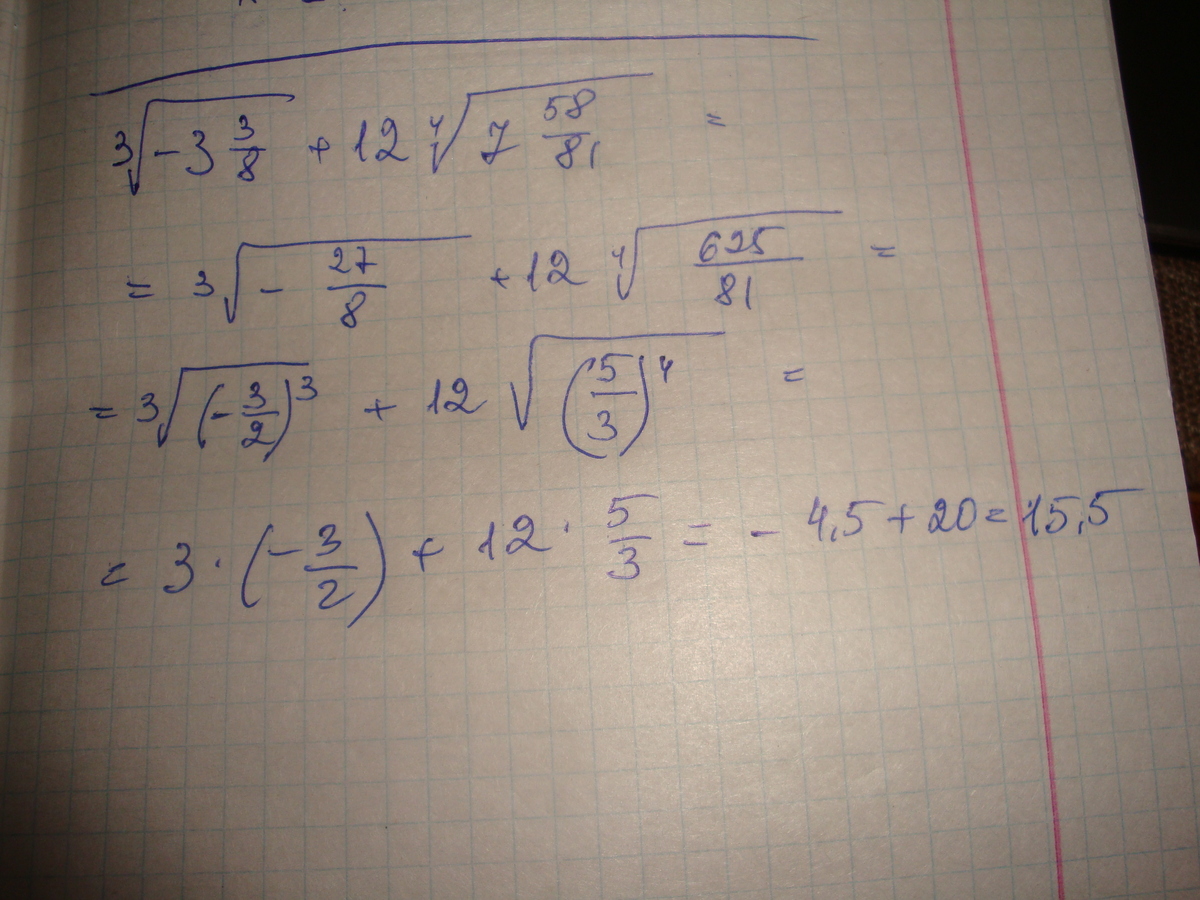 ∛(-3 3/8) + 12 ∜(7 58/81) =
= ∛(-27/8) + 12 ∜(625/81) =
= ∛((-3/2)^3) + 12 √((5/3)^4) =
= 3 · (-3/2) + 12 · 5/3 = - 4,5 + 20 = 15,5